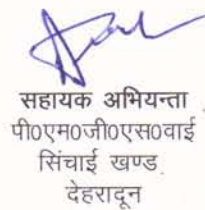 सहायक अभियन्ता
पी०एम०जी०एस०वाई
सिंचाई खण्ड
देहरादून